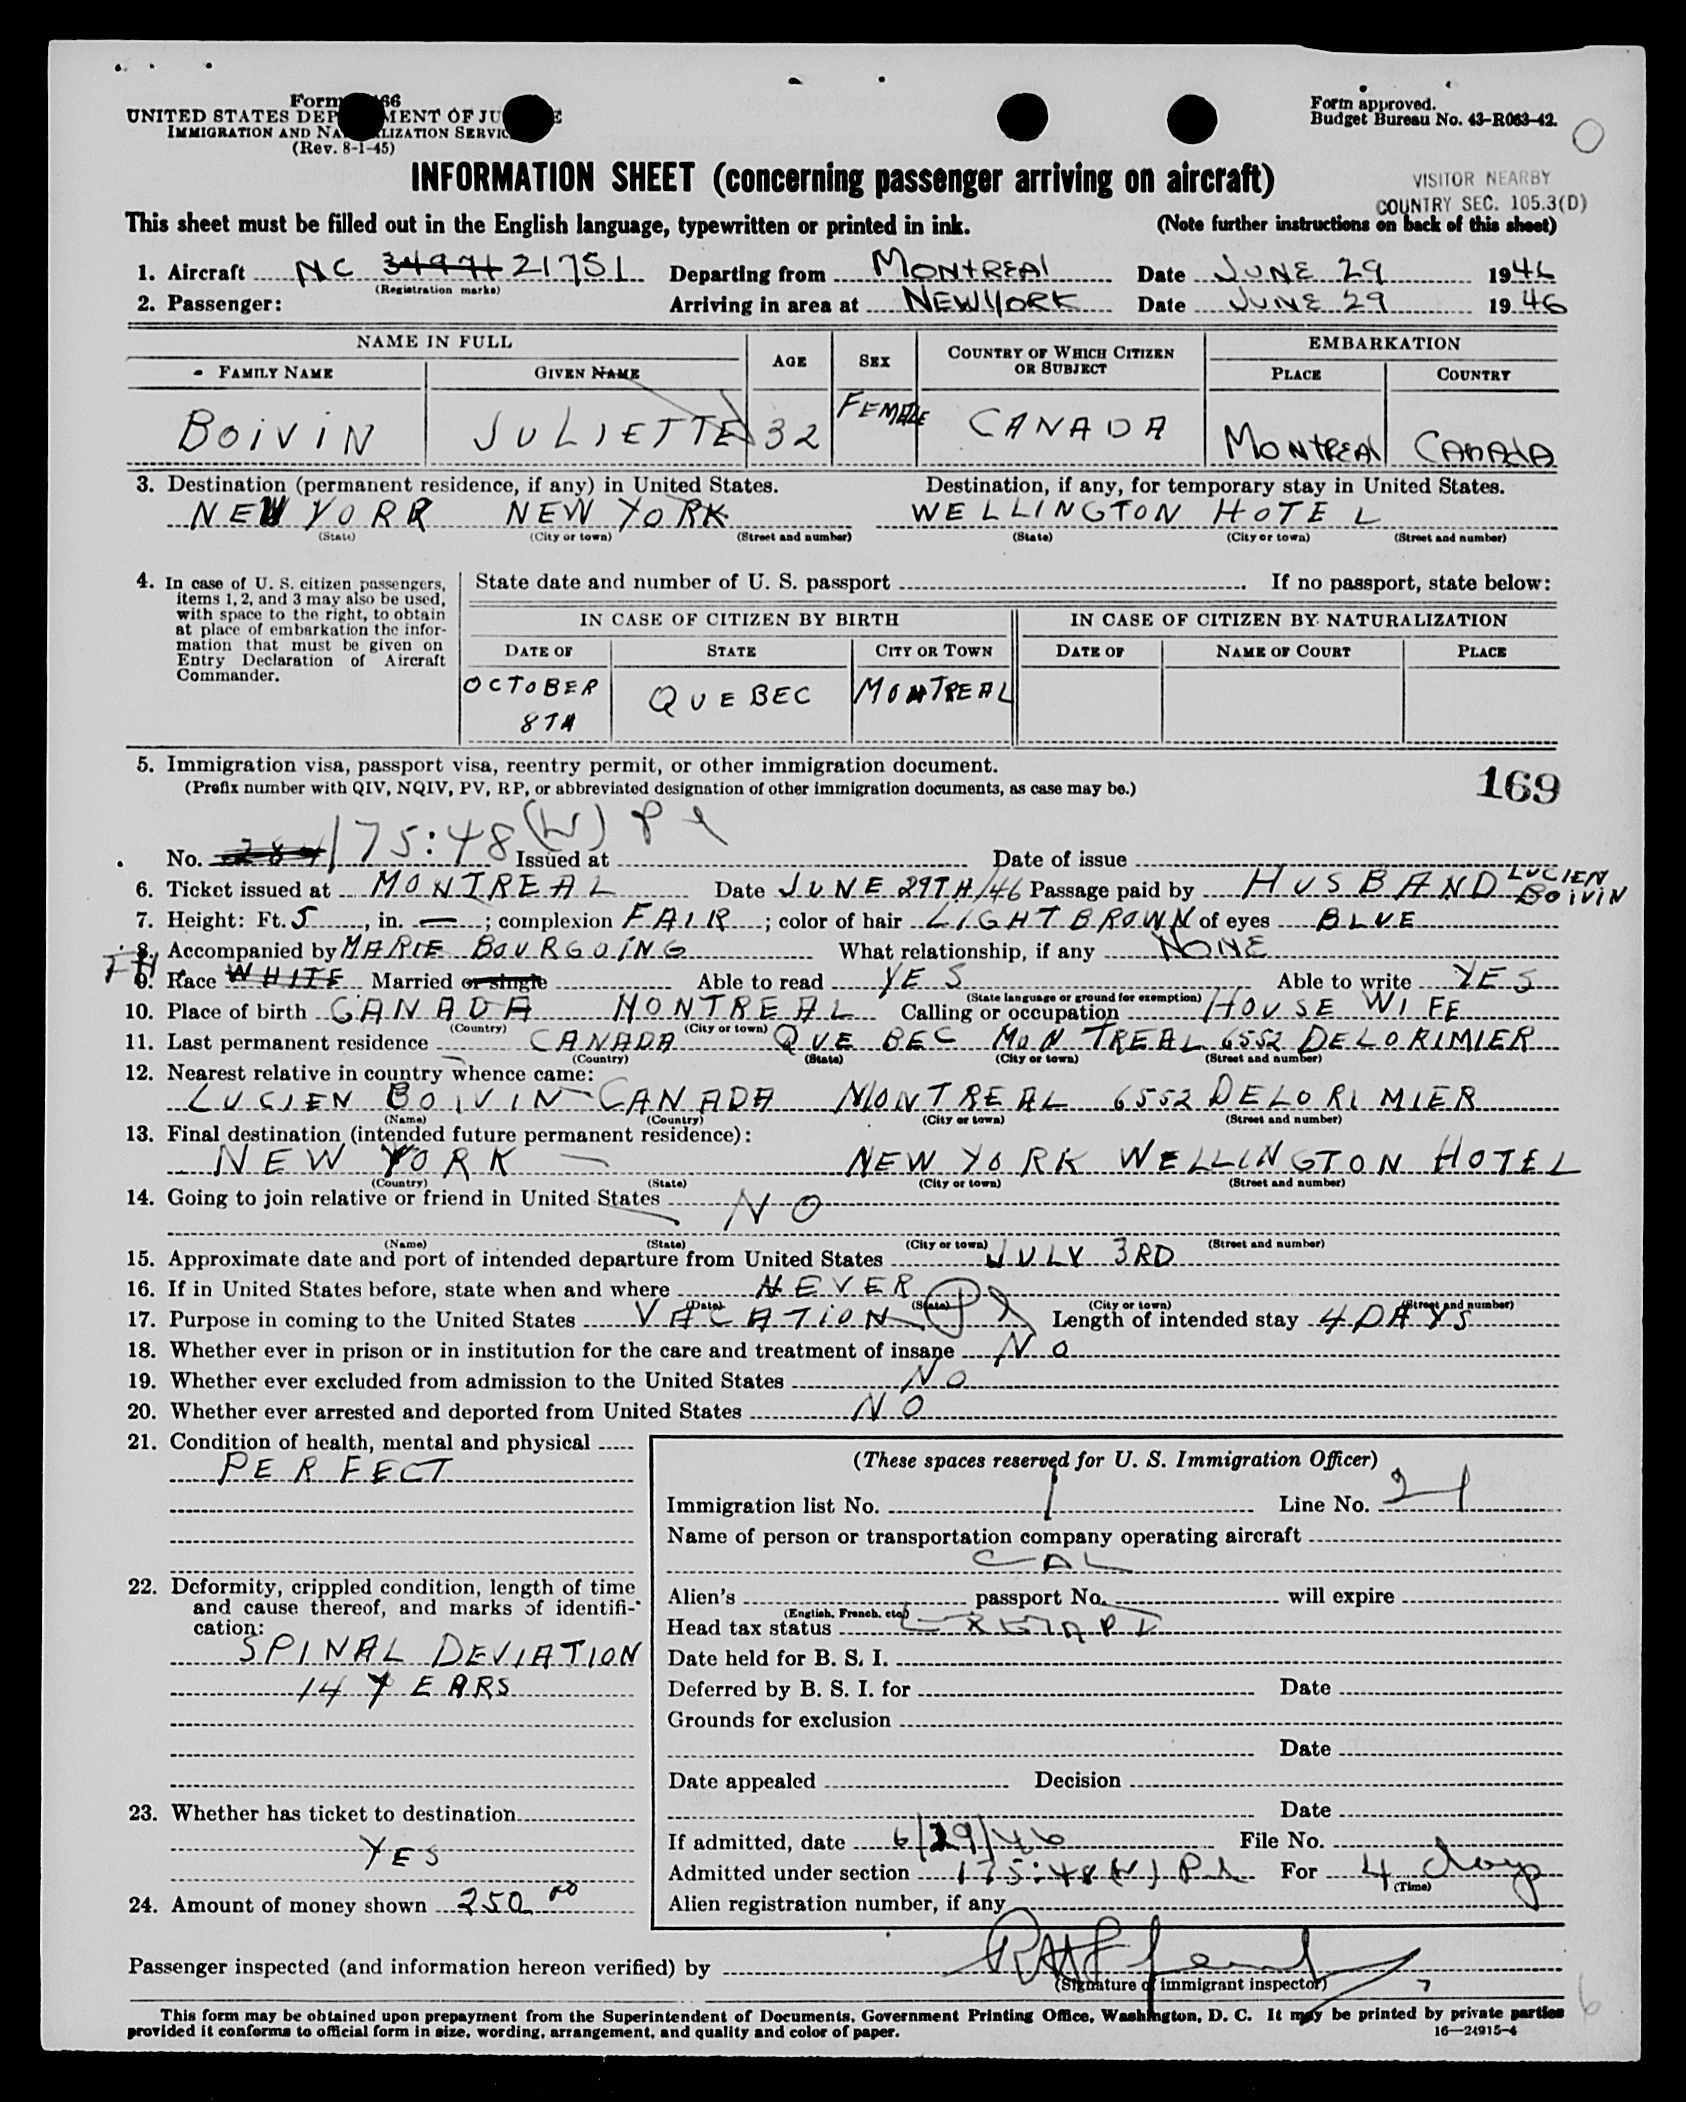 Form 66
UNITED STATES DEP MENT OF JU E
IMMIGRATION AND NA LIZATION SERVIC
(Rev. 8-1-45)
Form approved.
Budget Bureau No. 43-R063-42.
INFORMATION SHEET (concerning passenger arriving on aircraft)
VISITOR NEARBY
COUNTRY SEC. 105.3(D)
This sheet must be filled out in the English language, typewritten or printed in ink. (Note further instructions on back of this sheet)
1. Aircraft NC 34971 21751 Departing from MONTREAL Date JUNE 29 1946
(Registration marks)
2. Passenger: Arriving in area at NEW YORK Date JUNE 29 1946
NAME IN FULL AGE SEX COUNTRY OF WHICH CITIZEN OR SUBJECT EMBARKATION
FAMILY NAME GIVEN NAME PLACE COUNTRY
BOIVIN JULIETTE 32 FEMALE CANADA MONTREAL CANADA
3. Destination (permanent residence, if any) in United States. Destination, if any, for temporary stay in United States.
NEW YORK NEW YORK WELLINGTON HOTEL
(State) (City or town) (Street and number) (State) (City or town) (Street and number)
4. In case of U. S. citizen passengers, items 1, 2, and 3 may also be used, with space to the right, to obtain at place of embarkation the information that must be given on Entry Declaration of Aircraft Commander.
State date and number of U. S. passport If no passport, state below:
IN CASE OF CITIZEN BY BIRTH IN CASE OF CITIZEN BY NATURALIZATION
DATE OF STATE CITY OR TOWN DATE OF NAME OF COURT PLACE
OCTOBER 8TH QUEBEC MONTREAL
5. Immigration visa, passport visa, reentry permit, or other immigration document.
(Prefix number with QIV, NQIV, PV, RP, or abbreviated designation of other immigration documents, as case may be.)
169
No. 175:48 (W) Issued at Date of issue
6. Ticket issued at MONTREAL Date JUNE 29TH/46 Passage paid by HUSBAND LUCIEN BOIVIN
7. Height: Ft. 5, in. —; complexion FAIR; color of hair LIGHT BROWN of eyes BLUE
8. Accompanied by MARIE BOURGOING What relationship, if any NONE
9. Race WHITE Married or single Able to read YES Able to write YES
(State language or ground for exemption)
10. Place of birth CANADA MONTREAL Calling or occupation HOUSE WIFE
(Country) (City or town)
11. Last permanent residence CANADA QUEBEC MONTREAL 6552 DELORIMIER
(Country) (State) (City or town) (Street and number)
12. Nearest relative in country whence came:
LUCIEN BOIVIN - CANADA MONTREAL 6552 DELORIMIER
(Name) (Country) (City or town) (Street and number)
13. Final destination (intended future permanent residence):
NEW YORK — NEW YORK WELLINGTON HOTEL
(Country) (State) (City or town) (Street and number)
14. Going to join relative or friend in United States NO
(Name) (State) (City or town) (Street and number)
15. Approximate date and port of intended departure from United States JULY 3RD
16. If in United States before, state when and where NEVER
(Date) (State) (City or town) (Street and number)
17. Purpose in coming to the United States VACATION Length of intended stay 4 DAYS
18. Whether ever in prison or in institution for the care and treatment of insane NO
19. Whether ever excluded from admission to the United States NO
20. Whether ever arrested and deported from United States NO
21. Condition of health, mental and physical
PERFECT
22. Deformity, crippled condition, length of time and cause thereof, and marks of identification:
SPINAL DEVIATION
14 YEARS
23. Whether has ticket to destination
YES
24. Amount of money shown 250 00
(These spaces reserved for U. S. Immigration Officer)
Immigration list No. 1 Line No. 21
Name of person or transportation company operating aircraft
CAL
Alien's passport No. will expire
(English, French, etc.)
Head tax status
Date held for B. S. I.
Deferred by B. S. I. for Date
Grounds for exclusion
Date
Date appealed Decision
Date
If admitted, date 6/29/46 File No.
Admitted under section 175:48 (W) For 4 days
(Time)
Alien registration number, if any
Passenger inspected (and information hereon verified) by
(Signature of immigrant inspector)
This form may be obtained upon prepayment from the Superintendent of Documents, Government Printing Office, Washington, D. C. It may be printed by private parties
provided it conforms to official form in size, wording, arrangement, and quality and color of paper.
16—24915-4